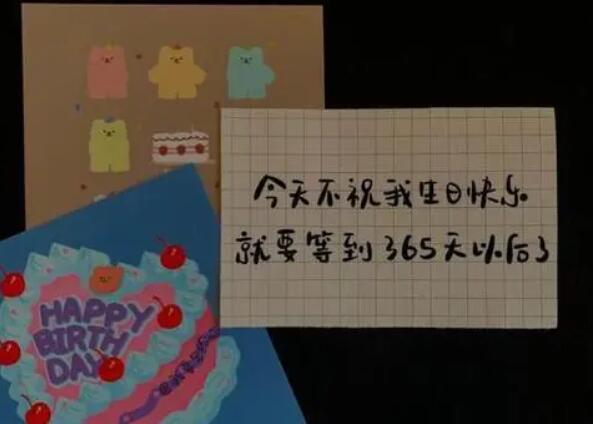 今天不祝我生日快乐
就要等到365天以后了
HAPPY
BIRTH
DAY